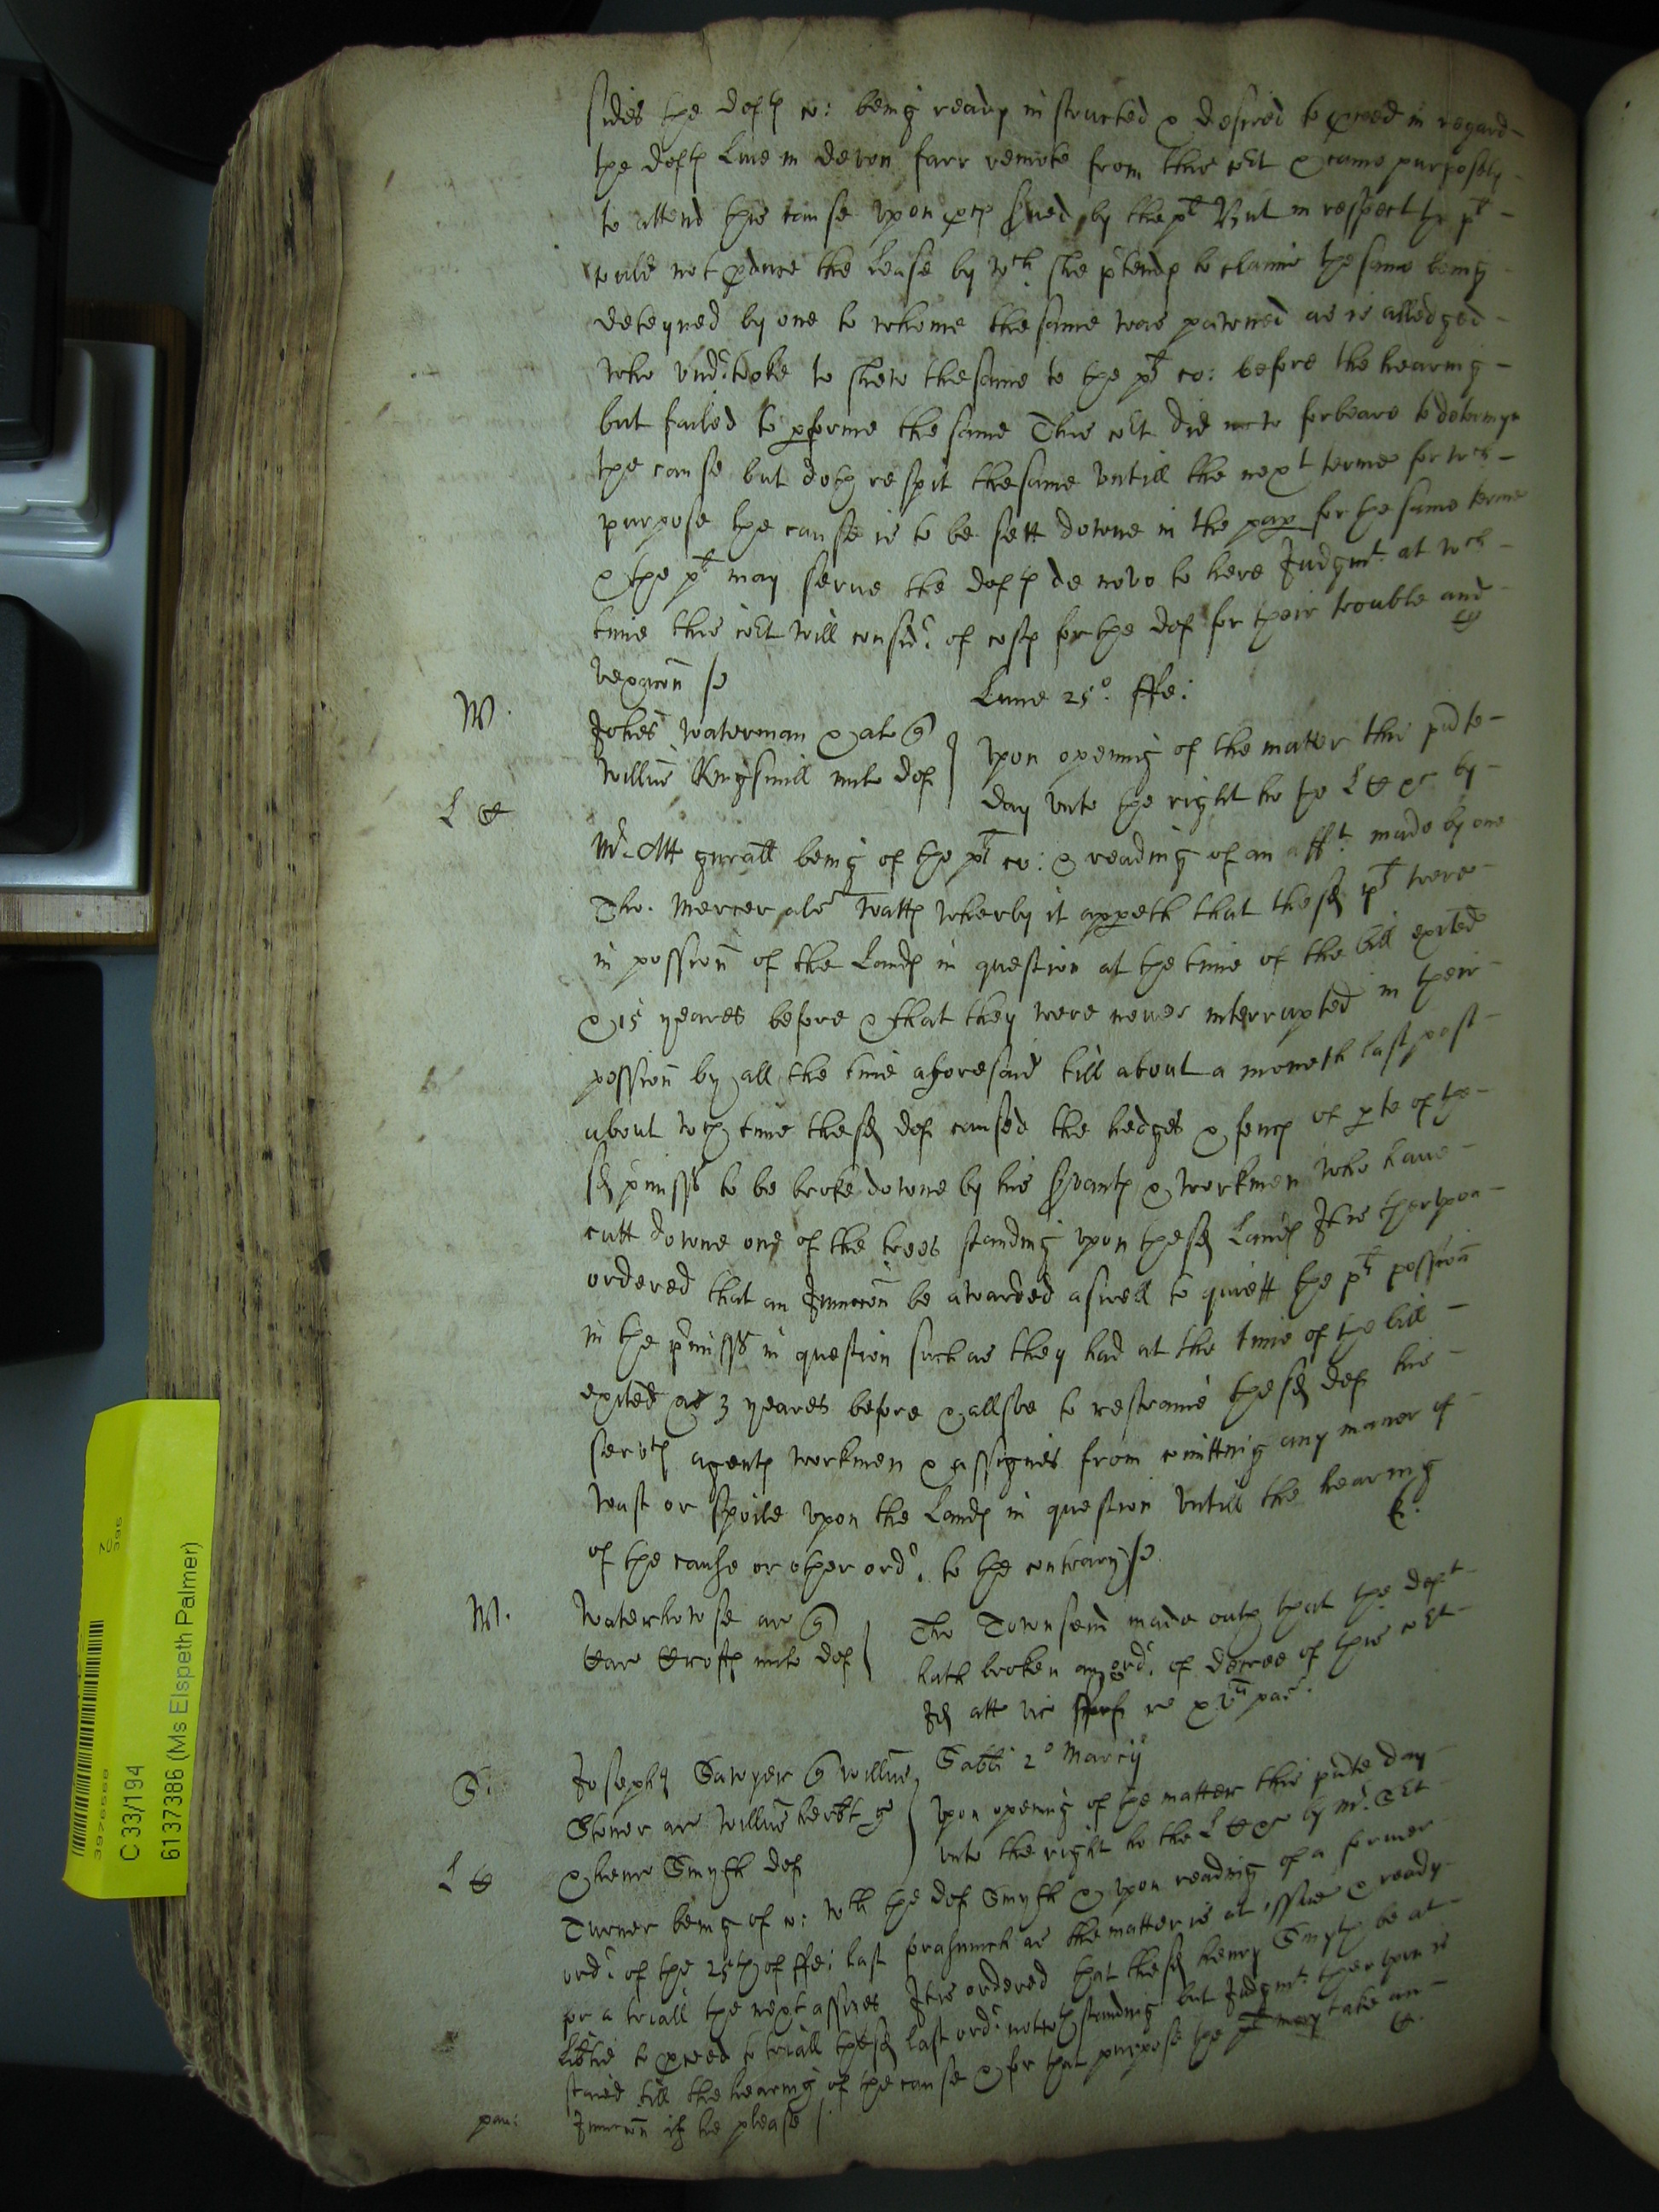 sides the deftℯ co: being ready instructed & desired to ꝓceed in regard
the deftℯ Live in devon farr remote from this coᵉt & came purposely
to attend this cause vpon ꝓces sued by the pᵗ But in respect the pᵗ
could not ꝓduce the Lease by wᶜʰ she p'tends to claime the same being
deteyned by one to whome the same was pawned as is alledged
who vnd'tooke to shew the same to the pᵗˢ co: before the hearing
but failed to ꝑforme the same This coᵉt did forbeare to determyn
the cause but doth respit the same vntill the next terme for wᶜʰ
purpose the cause is to be sett downe in the pap for the same terme
& the pᵗ may serve the deftℯ de novo to here Judgmᵗ. at wᶜʰ
time this coᵉt will consid' of costℯ for the def for their trouble and
vexacon
Lune 25°. ffe:
W.
Johes Waterman & al q
Willm Kingsmill mile def
Vpon opening of the matter this p'nte
day vnto the right ho the L & by
L
Mʳ Att gnrall being of the pᵗˢ co: & reading of an afftᵗ. made by one
Tho. Mercer als Wattℯ wherby it appeth that thesd pᵗˢ were
in possion of the Landℯ in question at the time of the bill exited
& 15 yeares before & that they were never interrupted in their
possion by all the time aforesaid till about a moneth last past
about wch time thesd def caused the hedges & fencℯ of ꝑte of the
sd p'missℯ to be broke downe by his s'vantℯ & workmen who have
cutt downe one of the trees standing vpon thesd Landℯ It is thervpon
ordered that an Inunccon be awarded aswell to quiett the pᵗˢ possion
in the p'missℯ in question such as they had at the time of the bill
exited & 3 yeares before & allsoe to restraine thesd def his
servtℯ agentℯ workmen & assignes from comitting any maner of
wast or spoile vpon the Landℯ in question vntill the hearing
of the cause or other ord'. to the contrary
W.
Waterhowse ar q
mile def
Tho Townsend made oath that the deft
hath broken an ord'. of decree of this coᵉt
Id att vic
Sabbi 2° Marcij
S:
Josephus Sawyer q Willm
Stoner ar Willm herbt
& henr Smyth def
Vpon opening of the matter this p'nte day
vnto the right ho the L by mʳ. Sᵉt
L
Turner being of co: wᵗʰ the def Smyth & vpon reading of a former
ord'. of the 25th of ffe: last forasmuch as the matter is at issue & ready
for a triall the next assizes It is ordered that thesd henry Smyth be at
lib'tie to ꝓceed to triall thesd last ord'. notwthstanding but Judgmᵗ. thervpon is
staied till the hearing of the cause & for that purpose the pᵗ may take an
Inuncon if he please
pan:
C 33/194
6137386 (Ms Elspeth Palmer)